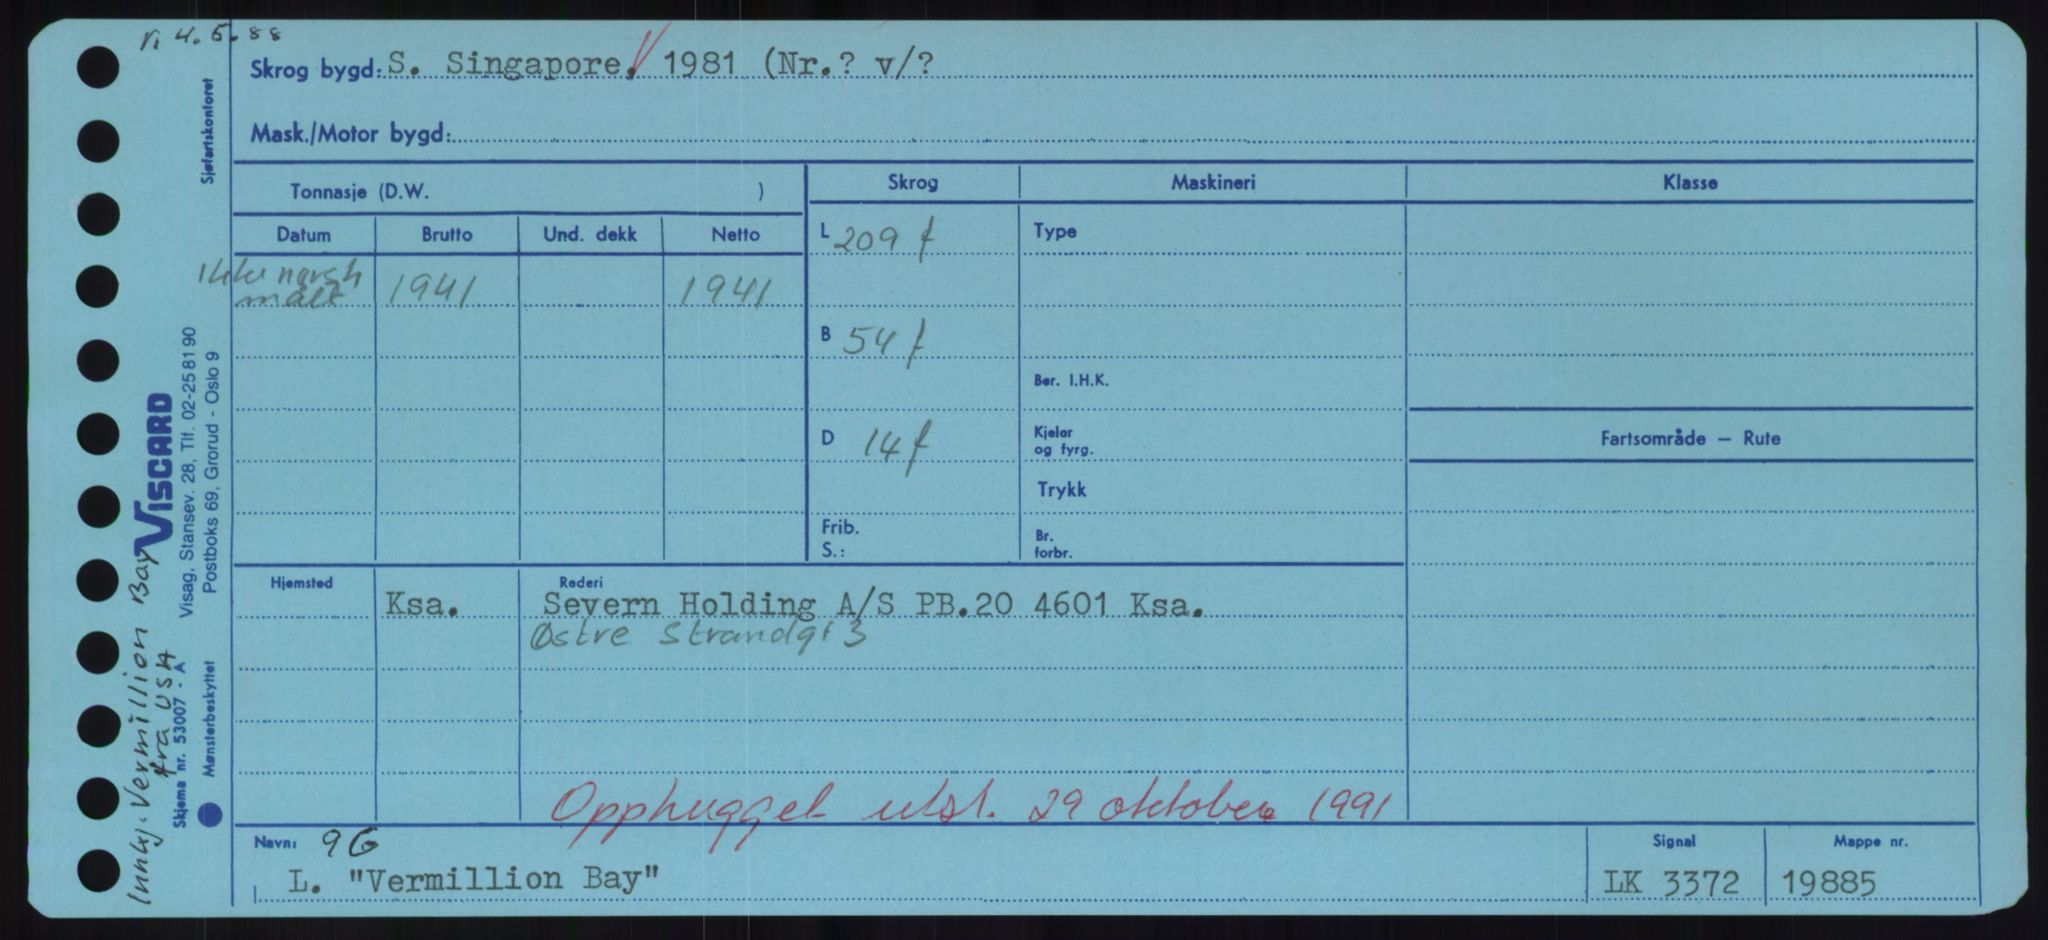 4.5.88
Skrog bygd: S. Singapore. 1981 (Nr.? v/?
Mask./Motor bygd:
Sjøfartskontoret
Tonnasje (D.W. )
Skrog Maskineri Klasse
Datum Brutto Und. dekk Netto
L 209 f Type
Ikke norsk
målt 1941 1941
B 54 f
Ber. I.H.K.
D 14 f
Kjeler
og fyrg.
Fartsområde — Rute
Trykk
Frib.
S.:
Br.
forbr.
VISCARD
Visag, Stansev. 28, Tlf. 02-25 81 90
Postboks 69, Grorud - Oslo 9
Skjema nr. 53007 - A
Mønsterbeskyttet
Innkj. Vermillion Bay
fra USA
Hjemsted Rederi
Ksa. Severn Holding A/S PB.20 4601 Ksa.
Østre Strandgt 3
Opphugget utst. 29 oktober 1991
Navn: 96 Signal Mappe nr.
L. "Vermillion Bay" LK 3372 19885